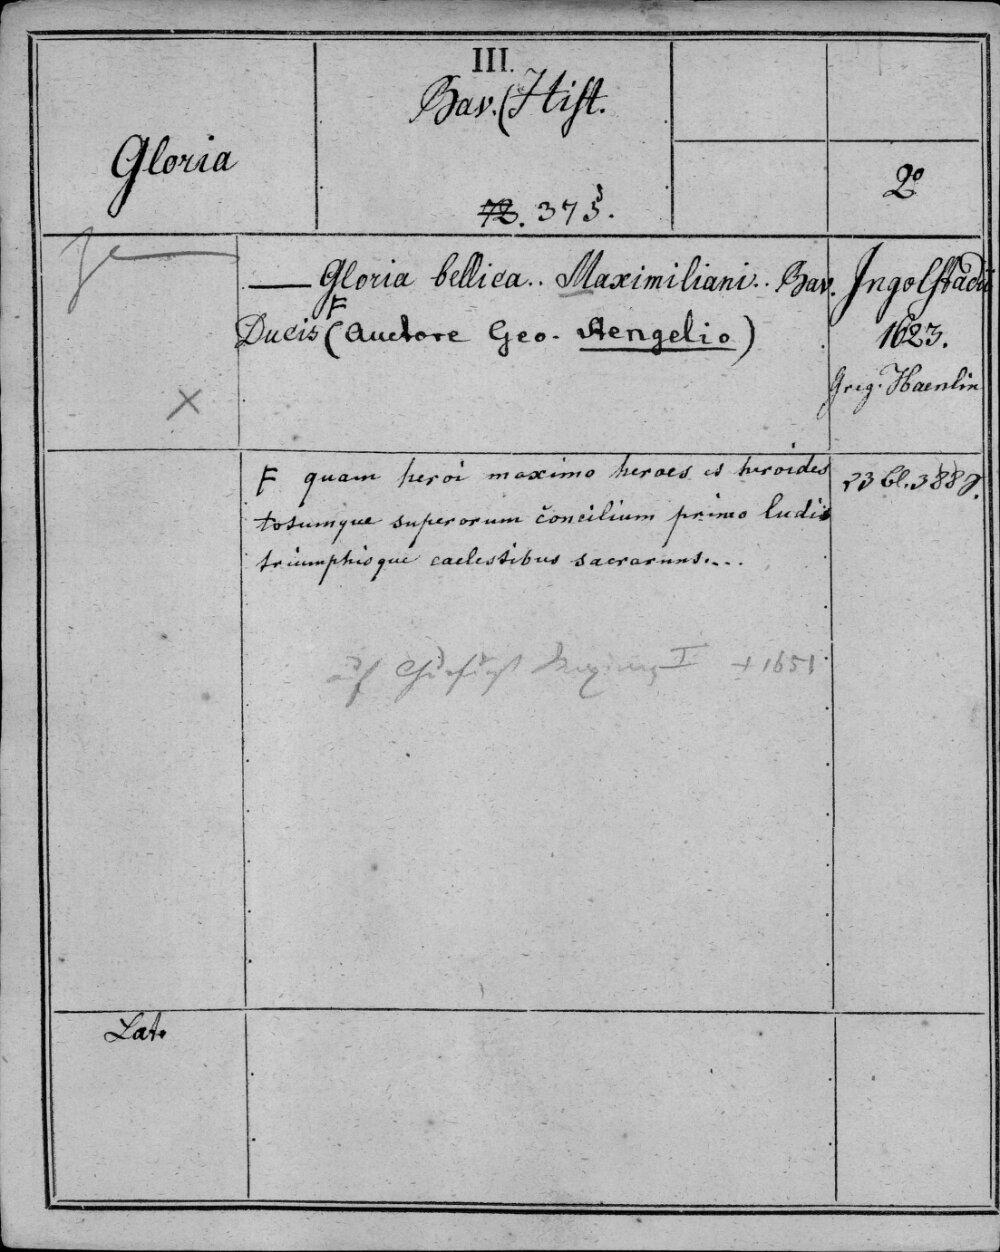 III.
Bav. (Hist.
Gloria
2°
72. 375.
— Gloria bellica.. Maximiliani.. Bav.
Ducis F (Auctore Geo. Stengelio)
Ingolstadii
1623.
Greg. Haenlin
F quam heroi maximo heroes et heroides
totumque superorum concilium primo ludis
triumphisque caelestibus sacrarunt...
23 Bl. 388 S.
auf Churfürst Maximil I + 1651
Lat.